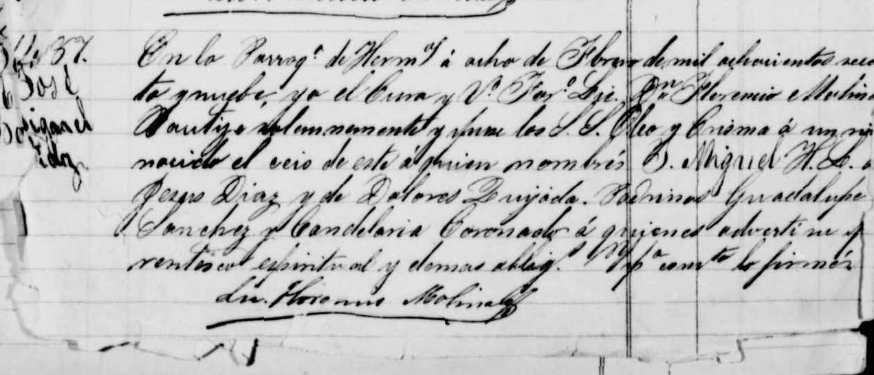 57. En la Parroq.ª de Herm.º á ocho de Febrero de mil ochocientos sese
José ta y nueve, yo el Cura y V.º For.º Lic. Dn Florencio Molina
Miguel Bautizé solemnemente y puse los S. S. Oleo y Crisma á un ni
Diaz nacido el seis de este á quien nombré J. Miguel H. L. d
Jesus Diaz y de Dolores Quijada. Padrinos Guadalupe
Sanchez y Candelaria Coronado á quienes advertí su p
rentesco espiritual y demas oblig.s Y p.ª const.ª lo firmé
Lic. Florencio Molina